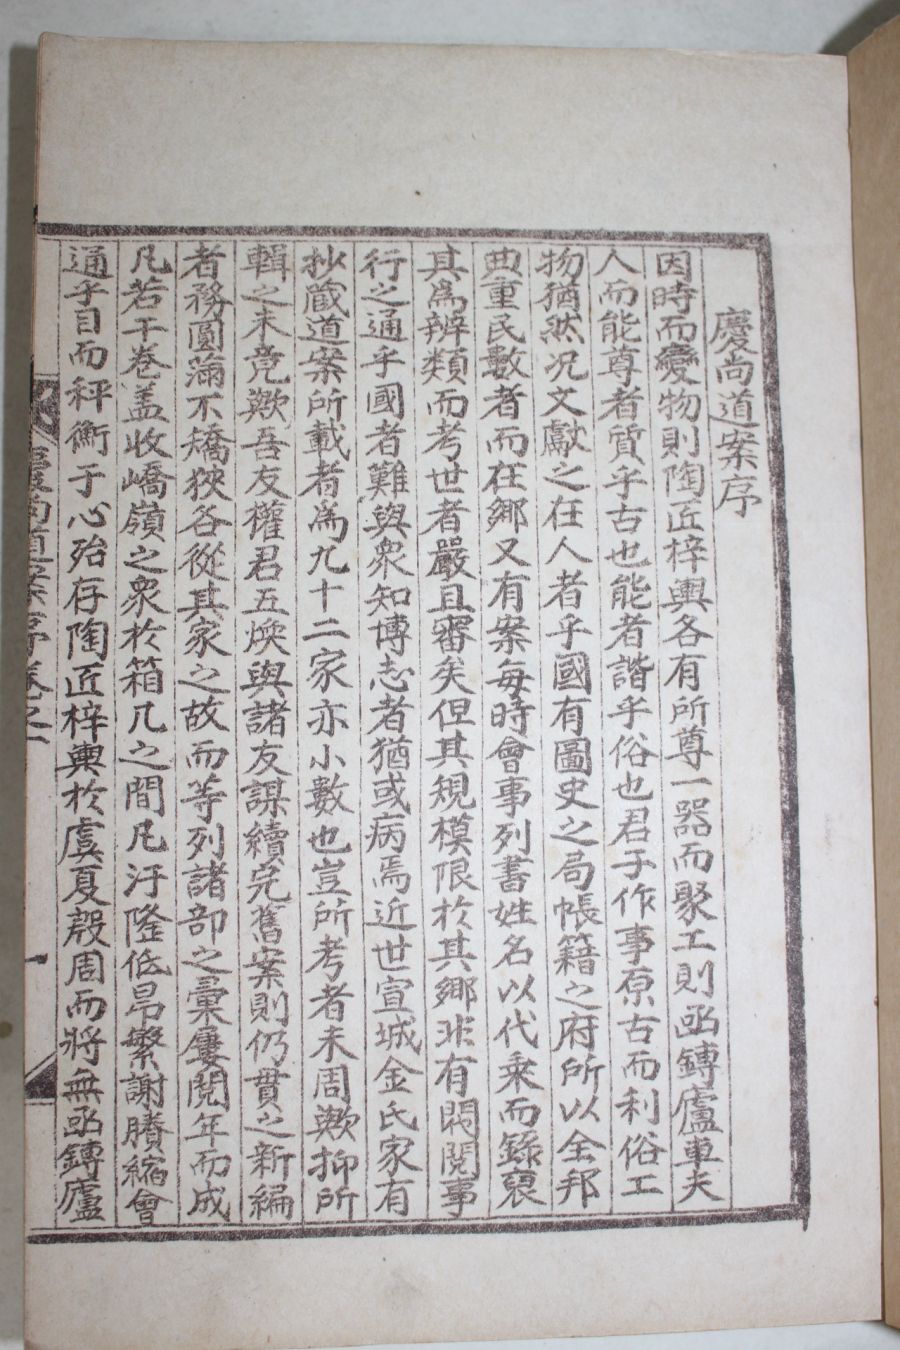 慶尚道案序
因時而變物則陶匠梓輿各有所尊一器而聚工則凾鎛廬車夫
人而能尊者質乎古也能者諧乎俗也君子作事原古而利俗工
物猶然况文獻之在人者乎國有圖史之局帳籍之府所以全邦
典重民數者而在鄉又有案每時會事列書姓名以代乘而錄裒
其爲辨類而考世者嚴且審矣但其規模限於其鄉非有閥閱事
行之通乎國者難與衆知博志者猶或病焉近世宣城金氏家有
抄藏道案所載者爲九十二家亦小數也豈所考者未周歟抑所
輯之未竟歟吾友權君五煥與諸友謀續完舊案則仍貫之新編
者務圓滿不矯狹各從其家之故而等列諸部之彙屢閱年而成
凡若干卷盖收嶠嶺之衆於箱几之間凡汙隆低昻繁謝賸縮會
通乎目而秤衡于心殆存陶匠梓輿於虞夏殷周而將無凾鎛廬
慶尚道案序卷之一
一